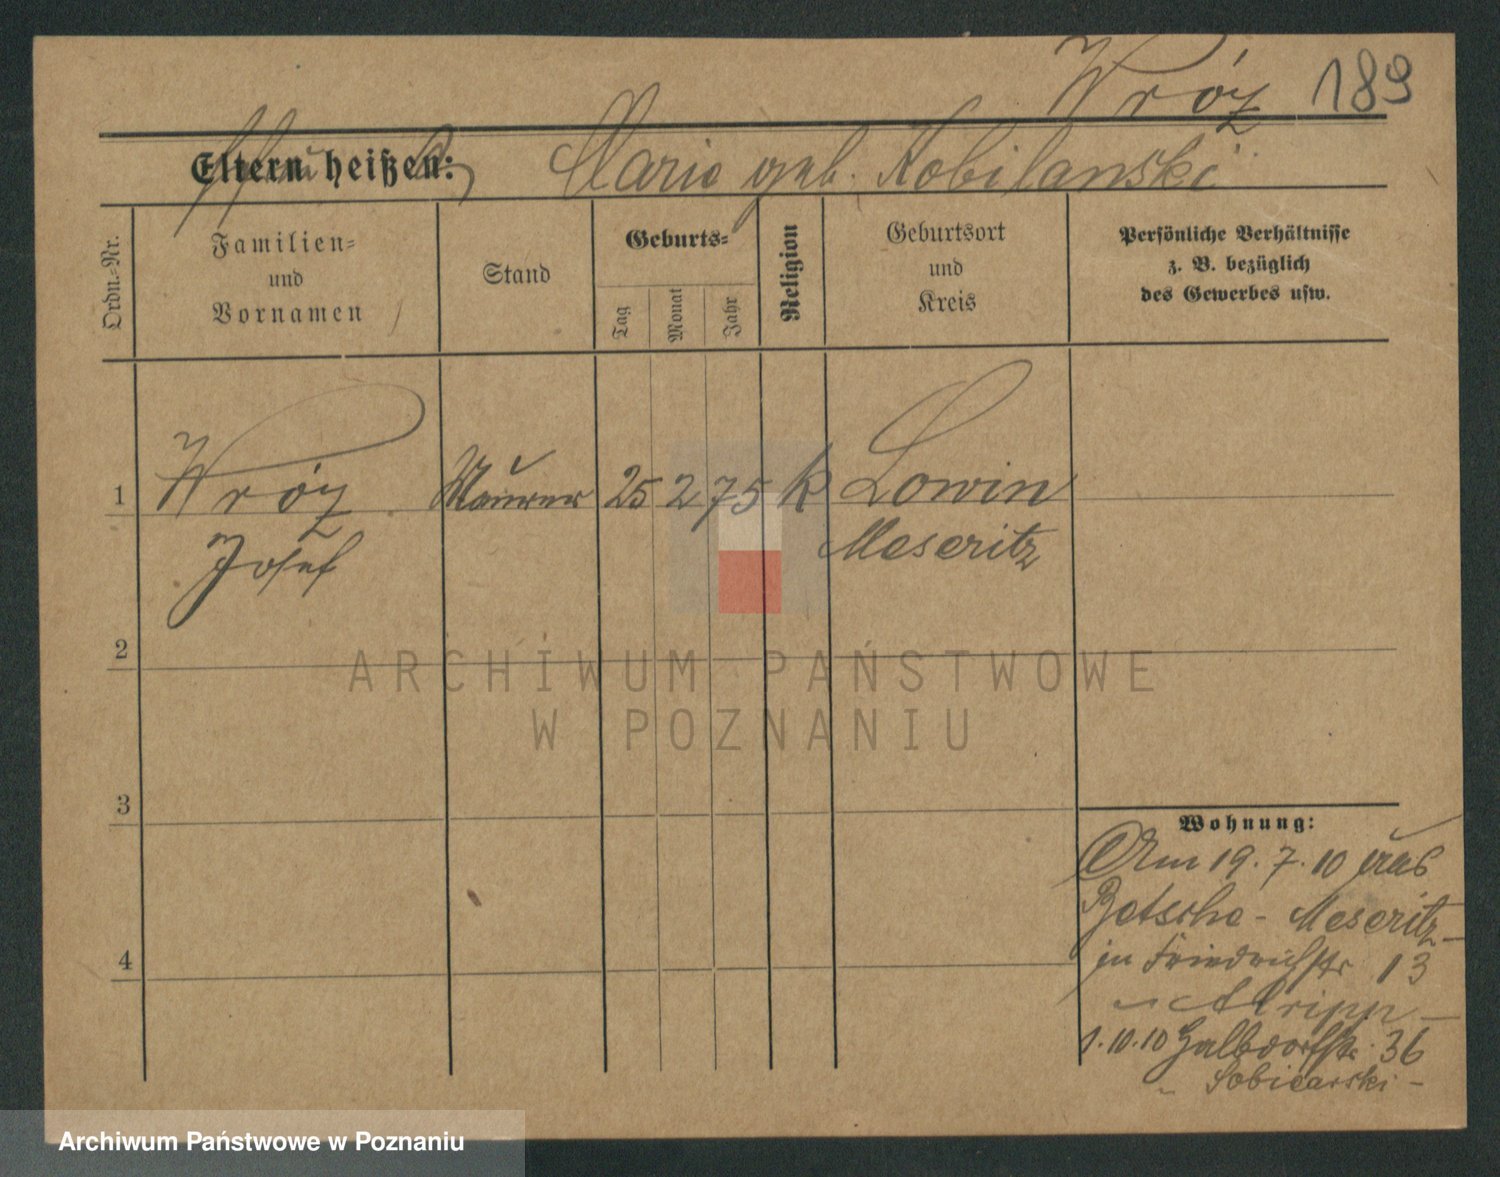 Wróz 189
Eltern heißen: Marie geb. Kobilanski
Ordn.-Nr.
Familien-
und
Vornamen
Stand
Geburts-
Tag
Monat
Jahr
Religion
Geburtsort
und
Kreis
Persönliche Verhältnisse
z. B. bezüglich
des Gewerbes usw.
1 Wróz Maurer 25 2 75 k Lowin
Josef Meseritz
2
3
4
Wohnung:
Am 19. 7. 10 aus
Betsche - Meseritz -
in Friedrichstr 13
1.10.10 36
ARCHIWUM PAŃSTWOWE
W POZNANIU
Archiwum Państwowe w Poznaniu